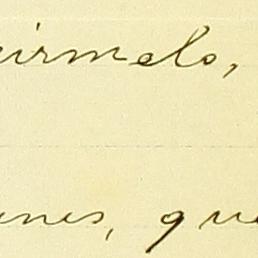 irmelo,
enes, que